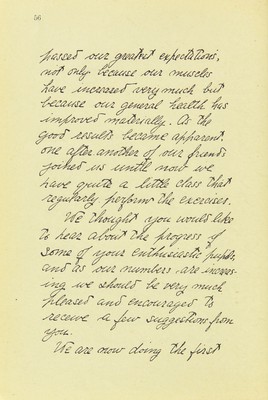 56
passed our greatest expectations,
not only because our muscles
have increased very much but
because our general health has
improved materially. As the
good results became apparent
one after another of our friends
joined us until now we
have quite a little class that
regularly perform the exercises.
We thought you would like
to hear about the progress of
some of your enthusiastic pupils,
and as our numbers are increas-
ing we should be very much
pleased and encouraged to
receive a few suggestions from
you.
We are now doing the first